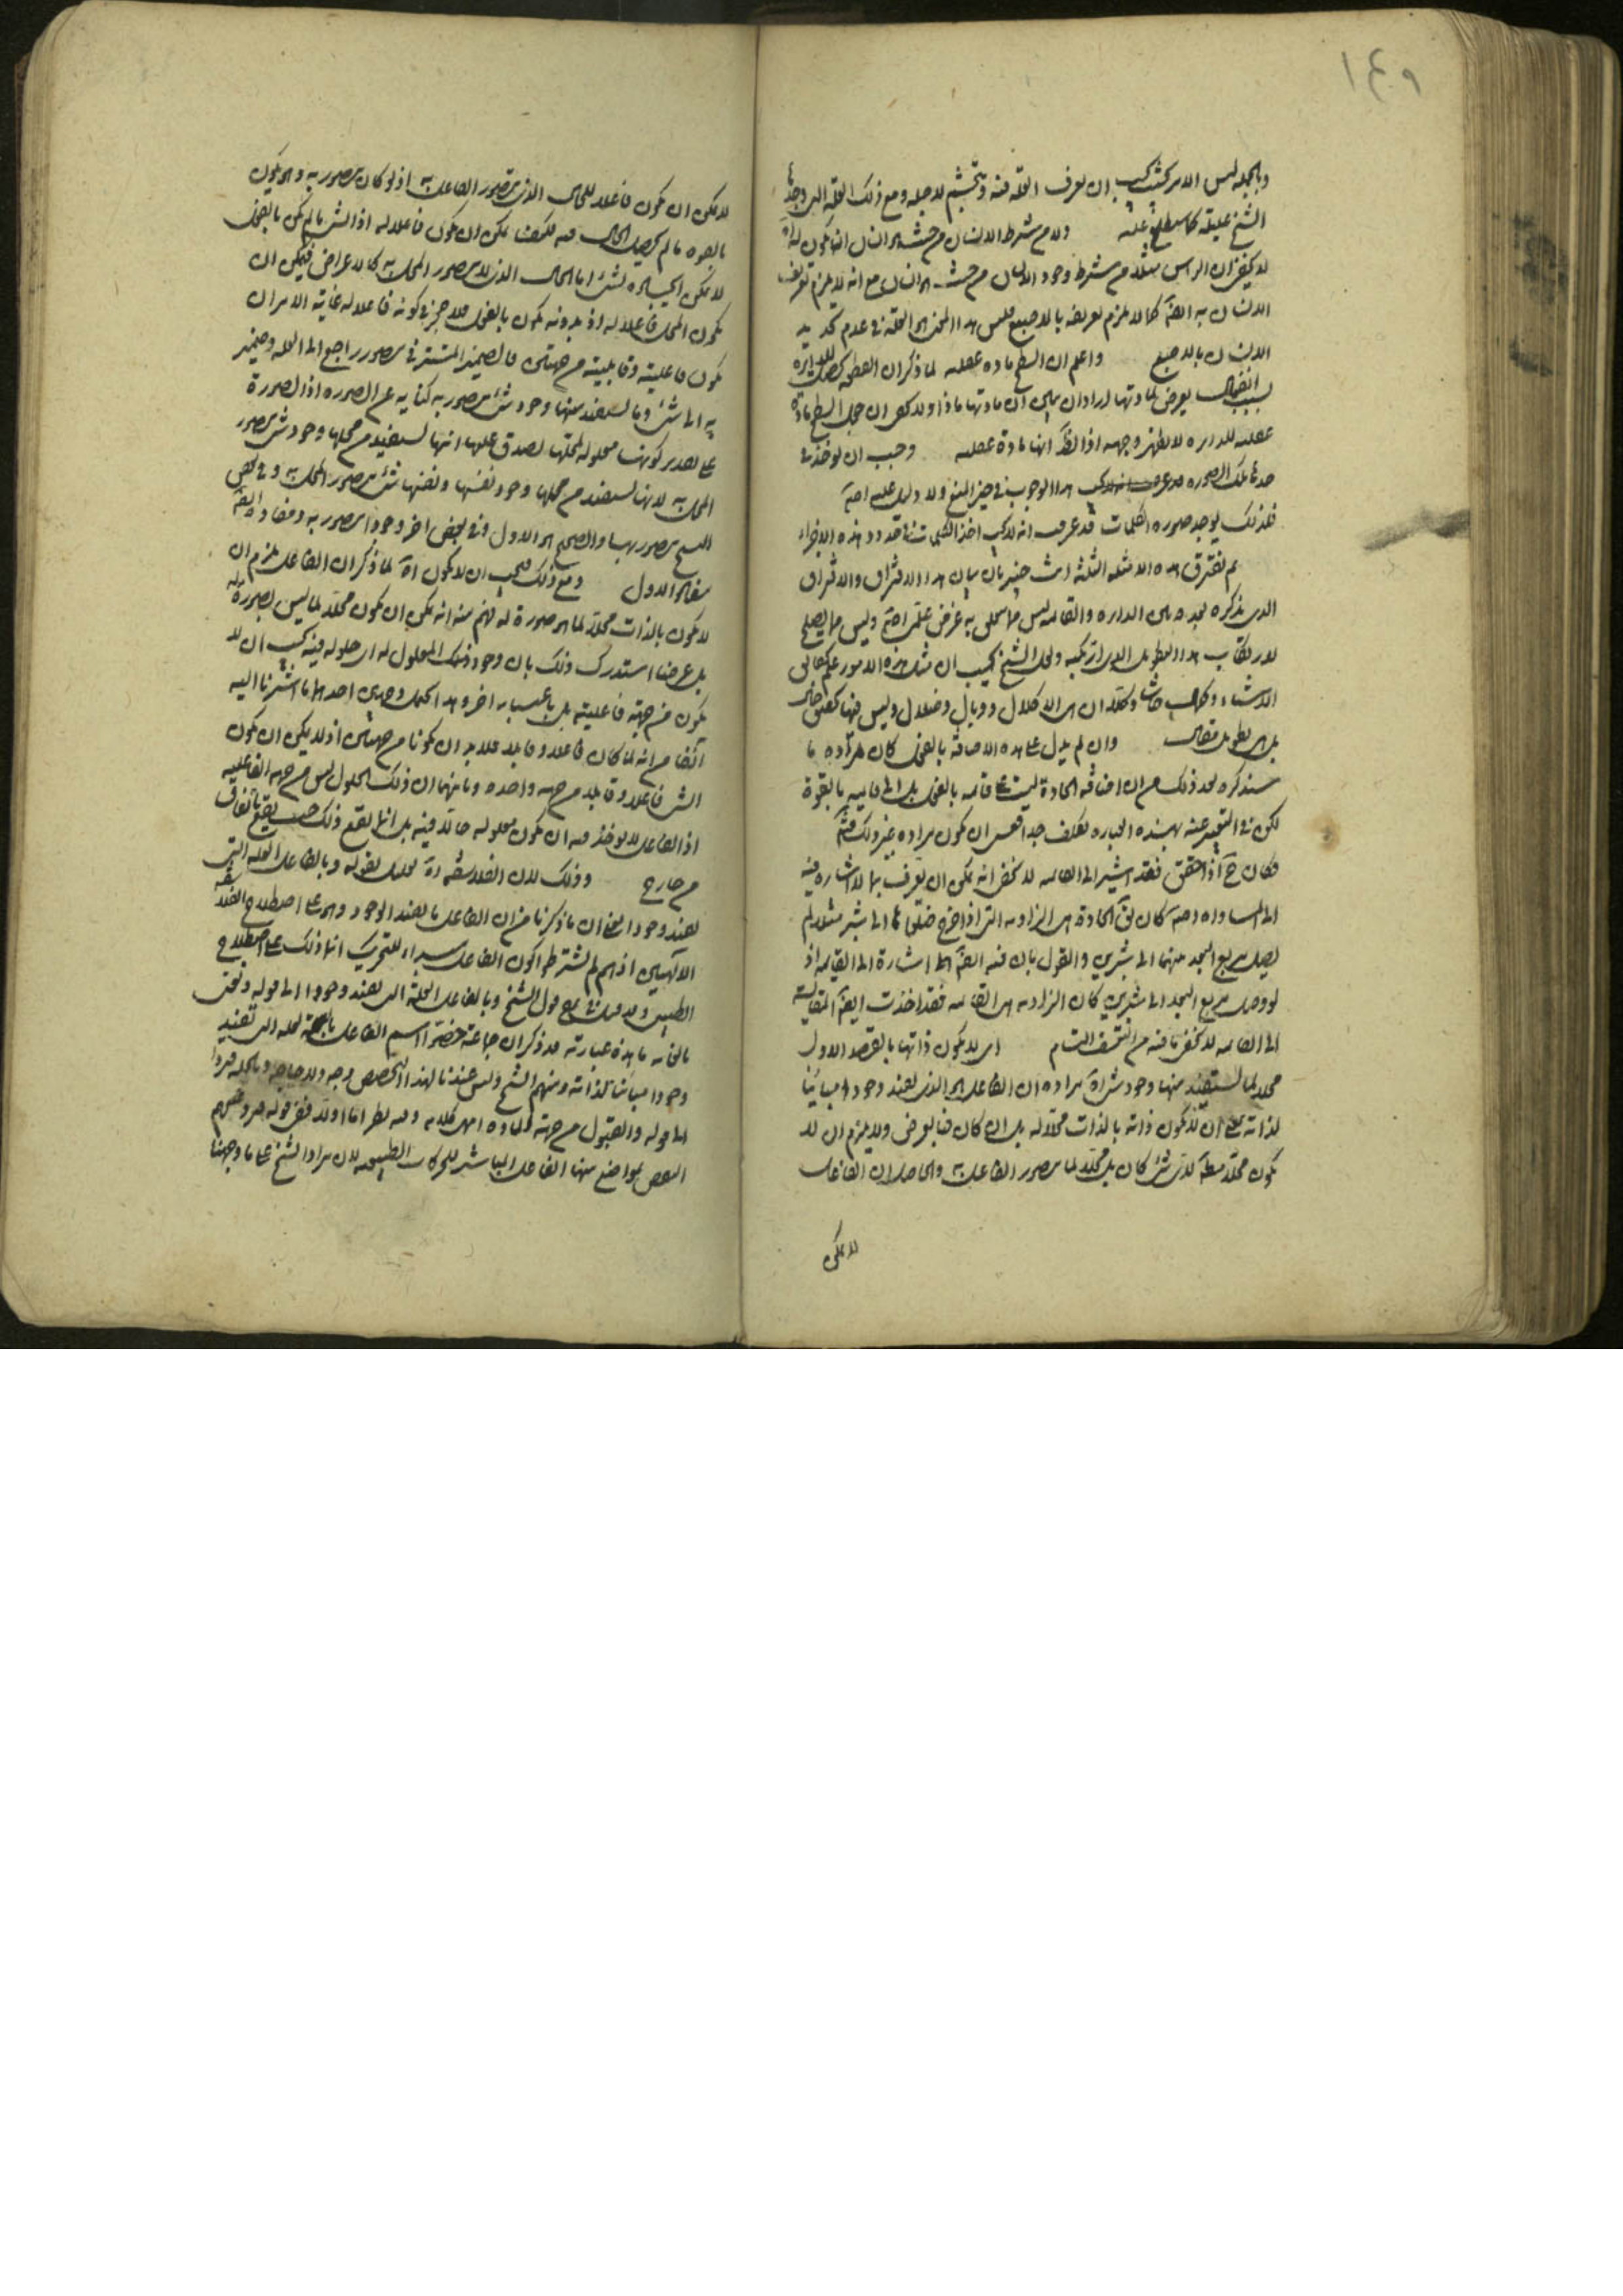 ١٤٩
وبالجملة ليس الامر كشئ يجب ان يعرف العلة فيه ويتجشم لاجله ومع ذلك العلة التى وجدها
الشيخ عليلة كما سيطلع عليه ولا من شرط الانسان من حيث هو انسان ان يكون له
لا يخفى ان الراس مثلا من شرط وجود الانسان من حيث هو انسان مع انه لا يلزم تعريف
الانسان به ايضا كما لا يلزم تعريفه بالاصبع فليس هذا المعنى هو العلة فى عدم تحديد
الانسان بالاصبع واعلم ان السطح مادة عقلية لما ذكر ان القطعة للدائرة
بسبب انفعال يعرض لمادتها اراد ان يبين ان مادتها ماذا
عقلية للدائرة لا يظهر وجهه اذ الظ انها مادة عقلية وجب ان يوخذ فى
حدها تلك الصورة هذا الوجوب فى حيز المنع ولا دليل عليه اصلا
فلذلك يوجد صورة الكليات قد عرفت انه لا يجب اخذ الكليات فى حدود هذه الاجزاء
ثم تفترق هذه الامثلة الثلثة انت خبير بان بيان هذا الافتراق والاشراق
الذى يذكره بعده بين الدائرة والقائمة ليس مما يتعلق به غرض علمى اصلا وليس مما يصلح
لارتكاب هذا التطويل الذى ارتكبه ولعل الشيخ يحسب ان مثل هذه الامور علم بحقائق
الاشياء وكمال حاشا وكلا ان هى الا كلال ووبال وضلال وليس فيها
بل هى تطويل مقال وان لم يدل على هذه الاضافة بالفعل كان مراده ما
سنذكره بعد ذلك من ان اضافة الحادة ليست على قائمة بالفعل بل الى قائمة بالقوة
لكن فى التعبير عنه بهذه العبارة تكلف جدا فعسى ان يكون مراده غير ذلك فتم
فكان ح اذا حقق فقد اشير الى القائمة لا يخفى انه يمكن ان تعرف بما لا اشارة فيه
الى المساواة اصلا كان يق الحادة هى الزاوية التى اذا اخرج ضلعاها الى شبر مثلا لم
يصل مربع البعد بينهما الى شبرين والقول بان فيه ايضا اشارة الى القائمة اذ
لو وصل مربع البعد الى شبرين كان الزاوية هى القائمة فقد اخذت ايضا المقايسة
الى القائمة لا يخفى ما فيه من التعسف التام اى لا يكون ذاتها بالقصد الاول
محلا لما يستفيد منها وجود شئ اه مراده ان الفاعل هو الذى يفيد وجودا مباينا
لذاته على ان لا يكون ذاته بالذات محلا له بل ان كان فبالعرض ولا يلزم ان لا
يكون محلا مطلقا لاى شئ كان بل محلا لما يتصور الفاعل به والحاصل ان الفاعل
لا يمكن
لا يمكن ان يكون فاعلا للحال الذى يتصور الفاعل به اذ لو كان يتصور به وهو يكون
بالقوة ما لم يحصل الحال فيه فكيف يمكن ان يكون فاعلا له اذ الشئ ما لم يكن بالفعل
لا يمكن ايجاده لشئ اما الحال الذى لا يتصور المحل به كالاعراض فيمكن ان
يكون المحل فاعلا له اذ بدونه يكون بالفعل فلا حجر فى كونه فاعلا له غاية الامر ان
يكون فاعليته وقابليته من جهتين فالضمير المستتر فى يتصور راجع الى العلة وضمير
به الى شئ وما يستفيد منها وجود شئ يتصور به كناية عن الصورة اذ الصورة
على تقدير كونها معلولة لمحلها يصدق عليها انها يستفيد من محلها وجود شئ يتصور
المحل به لانها يستفيد من محلها وجود نفسها ونفسها شئ يتصور المحل به وفى بعض
النسخ يتصور بها والصحيح هو الاول وفى بعض اخر وجودا يتصور به ومفاده ايضا
مفاد الاول ومع ذلك فيجب ان لا يكون اه لما ذكر ان الفاعل يلزم ان
لا يكون بالذات محلا لما هو صورة له فهم منه انه يمكن ان يكون محلا لما ليس بصورة له
بل عرضا استدرك ذلك بان وجود ذلك المعلول له اى حلوله فيه يجب ان لا
يكون من جهة فاعليته بل باعتبار اخر وهذا الحكم وجهين احدهما ما اشرنا اليه
آنفا من انه لما كان فاعلا وقابلا فلا بد ان يكونا من جهتين اذ لا يمكن ان يكون
الشئ فاعلا وقابلا من جهة واحدة وثانيهما ان ذلك الحلول ليس من جهة الفاعلية
اذ الفاعل لا يوخذ فيه ان يكون معلوله حالا فيه بل انما يقع ذلك حيث يقع باتفاق
من خارج وذلك لان الفلاسفة اه تعليل لقوله وبالفاعل العلة التى
يفيد وجودا يعنى ان ما ذكرنا من ان الفاعل ما يفيد الوجود وهو على اصطلاح الفلاسفة
الآلهيين اذ هم لم يشترطوا كون الفاعل مبداء للتحريك انما ذلك على اصطلاح
الطبيعيين قول الشيخ وبالفاعل العلة التى يفيد وجودا الى قوله ونعنى
بالغاية ما هذه عبارته قد ذكر ان جماعة خصوا اسم الفاعل بالعلة التى تفيد
وجودا مباينا لذاته ومنهم الشيخ وليس عندنا لهذا التخصيص وجه ولا حاجة وبالجملة
الى قوله والقبول من جهة المادة انتهى كلامه وفيه نظر اما اولا ففى قوله
النقض بمواضع منها الفاعل المباشر للحركات الطبيعية لان مراد الشيخ على ما وجهنا